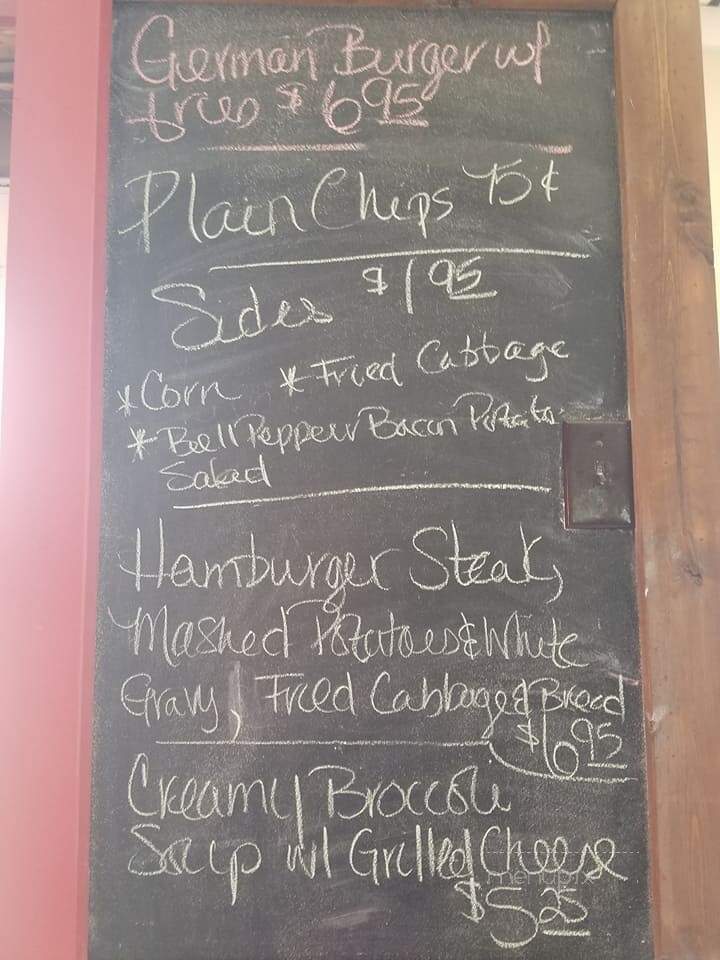 German Burger w/
fries $6.95
Plain Chips 75¢
Sides $1.95
*Corn *Fried Cabbage
*Bell Pepper Bacon Potato
Salad
Hamburger Steak,
Mashed Potatoes & White
Gravy, Fried Cabbage & Bread
$6.95
Creamy Broccoli
Soup w/ Grilled Cheese
menupix
$5.25